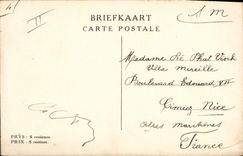 BRIEFKAART
CARTE POSTALE
S M
II
Madame
Villa Mireille
Boulevard Edouard VII
Cimiez Nice
Alpes Maritimes
France
PRYS : 5 centimen.
PRIX : 5 centimes.